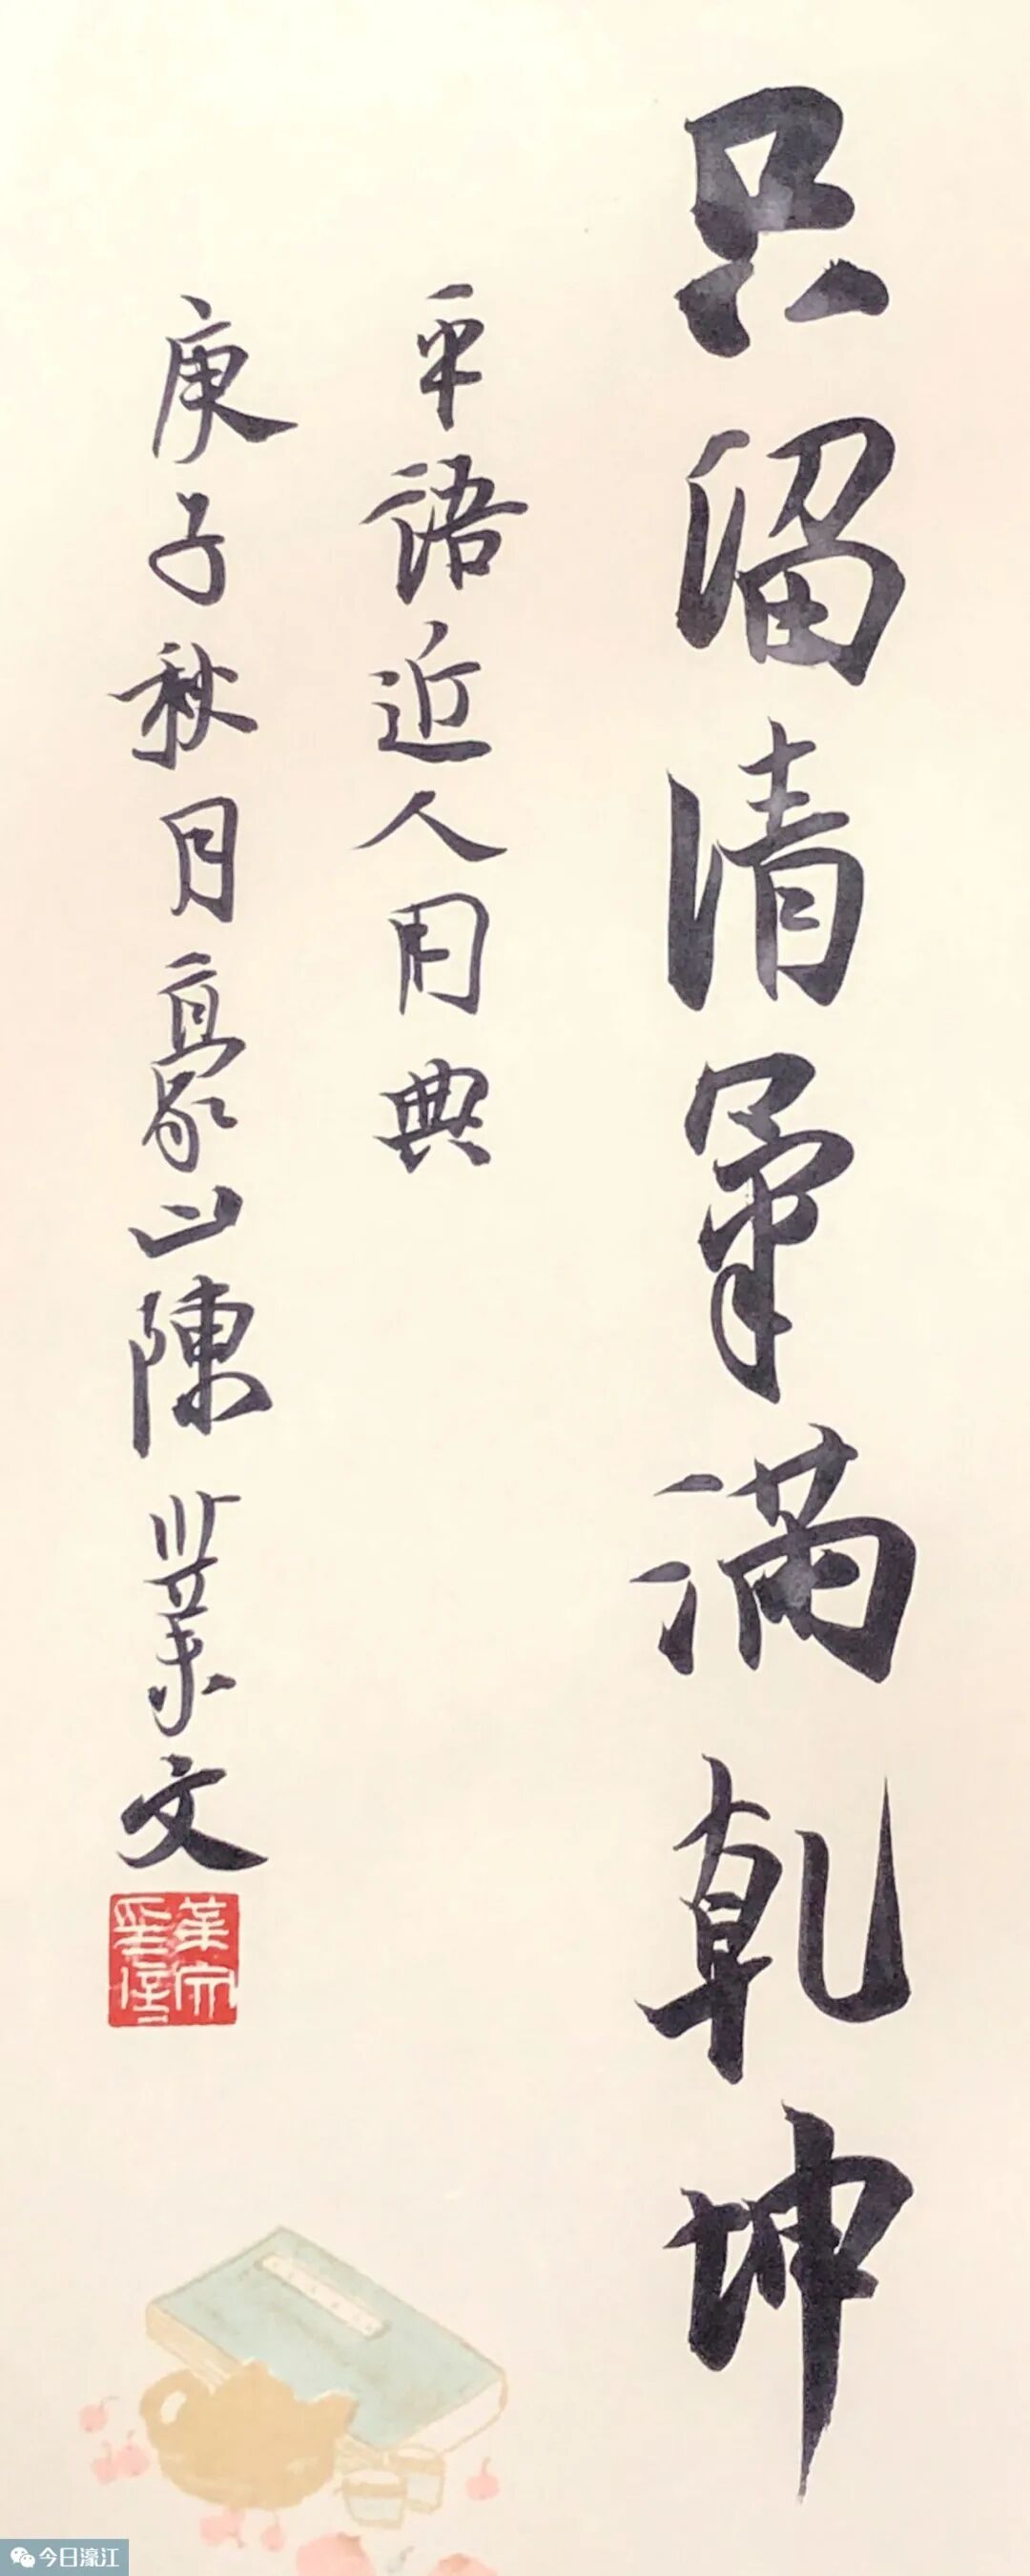 只留清氣滿乾坤
平語近人用典
庚子秋月豪山陳業文
今日濠江